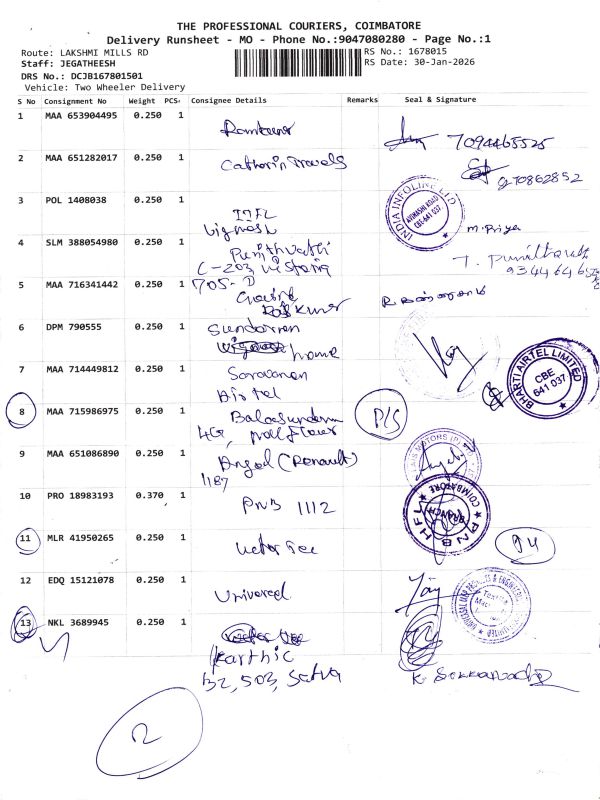 THE PROFESSIONAL COURIERS, COIMBATORE
Delivery Runsheet - MO - Phone No.:9047080280 - Page No.:1
Route: LAKSHMI MILLS RD
RS No.: 1678015
Staff: JEGATHEESH
RS Date: 30-Jan-2026
DRS No.: DCJB167801501
Vehicle: Two Wheeler Delivery
S No Consignment No Weight PCS Consignee Details Remarks Seal & Signature
1 MAA 653904495 0.250 1
7094465525
2 MAA 651282017 0.250 1 Catherin Travels
970862852
3 POL 1408038 0.250 1 IIFL
Vignesh
INDIA INFOLINE LTD
AVINASHI ROAD
CBE-641 037
M. Priya
4 SLM 388054980 0.250 1 Punithvathi
C-203 Vistaria
T. Punitharathi
5 MAA 716341442 0.250 1 705-D
Govind
Rajkumar
6 DPM 790555 0.250 1 Sundarren
home
7 MAA 714449812 0.250 1 Saravanan
Airtel
BHARTI AIRTEL LIMITED
CBE
641 037
8 MAA 715986975 0.250 1 Balasundaram
4G,
P/S
9 MAA 651086890 0.250 1 Angel (Renault)
1187
10 PRO 18983193 0.370 1 PNB 1112
PNB HFL
COIMBATORE
BRANCH
11 MLR 41950265 0.250 1
12 EDQ 15121078 0.250 1 Universal
13 NKL 3689945 0.250 1
Karthic
B2, 503, Satva
2